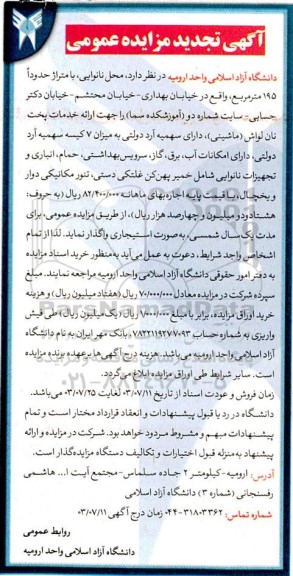 آگهی تجدید مزایده عمومی
دانشگاه آزاد اسلامی واحد ارومیه در نظر دارد، محل نانوایی، با متراژ حدوداً
۱۹۵ مترمربع، واقع در خیابان بهداری-خیابان محتشم-خیابان دکتر
حسابی-سایت شماره دو (آموزشکده سما) را جهت ارائه خدمات پخت
نان لواش (ماشینی)، دارای سهمیه آرد دولتی به میزان ۷ کیسه سهمیه آرد
دولتی، دارای امکانات آب، برق، گاز، سرویس بهداشتی، حمام، انباری و
تجهیزات نانوایی شامل خمیر پهن‌کن غلتکی دستی، تنور مکانیکی دوار
و یخچال، با قیمت پایه اجاره‌بهای ماهانه ۸۲/۴۰۰/۰۰۰ ریال (به حروف:
هشتادودو میلیون و چهارصد هزار ریال)، از طریق مزایده عمومی، برای
مدت یک سال شمسی، به‌صورت استیجاری واگذار نماید. لذا از تمام
اشخاص واجد شرایط، دعوت به عمل می‌آید به‌منظور خرید اسناد مزایده
به دفتر امور حقوقی دانشگاه آزاد اسلامی واحد ارومیه مراجعه نمایند. مبلغ
سپرده شرکت در مزایده معادل ۷۰/۰۰۰/۰۰۰ ریال (هفتاد میلیون ریال) و هزینه
خرید اوراق مزایده، برابر با مبلغ ۱/۰۰۰/۰۰۰ ریال (یک میلیون ریال) طی فیش
واریزی به شماره حساب ۷۸۲۲۱۹۲۷۷۰۹۳، بانک مهر ایران به نام دانشگاه
آزاد اسلامی واحد ارومیه می‌باشد. هزینه درج آگهی‌ها برعهده برنده مزایده
است. سایر شرایط طی اوراق مزایده ابلاغ می‌گردد.
زمان فروش و عودت اسناد از تاریخ ۰۳/۰۷/۱۱ لغایت ۰۳/۰۷/۲۵ می‌باشد.
دانشگاه در رد یا قبول پیشنهادات و انعقاد قرارداد مختار است و تمام
پیشنهادات مبهم و مشروط مردود خواهد بود. شرکت در مزایده و ارائه
پیشنهاد به‌منزله قبول اختیارات و تکالیف دستگاه مزایده‌گذار است.
آدرس: ارومیه-کیلومتر ۲ جاده سلماس-مجتمع آیت ا... هاشمی
رفسنجانی (شماره ۳) دانشگاه آزاد اسلامی
شماره تماس: ۳۱۸۰۳۳۶۲-۰۴۴ زمان درج آگهی ۰۳/۰۷/۱۱
روابط عمومی
دانشگاه آزاد اسلامی واحد ارومیه